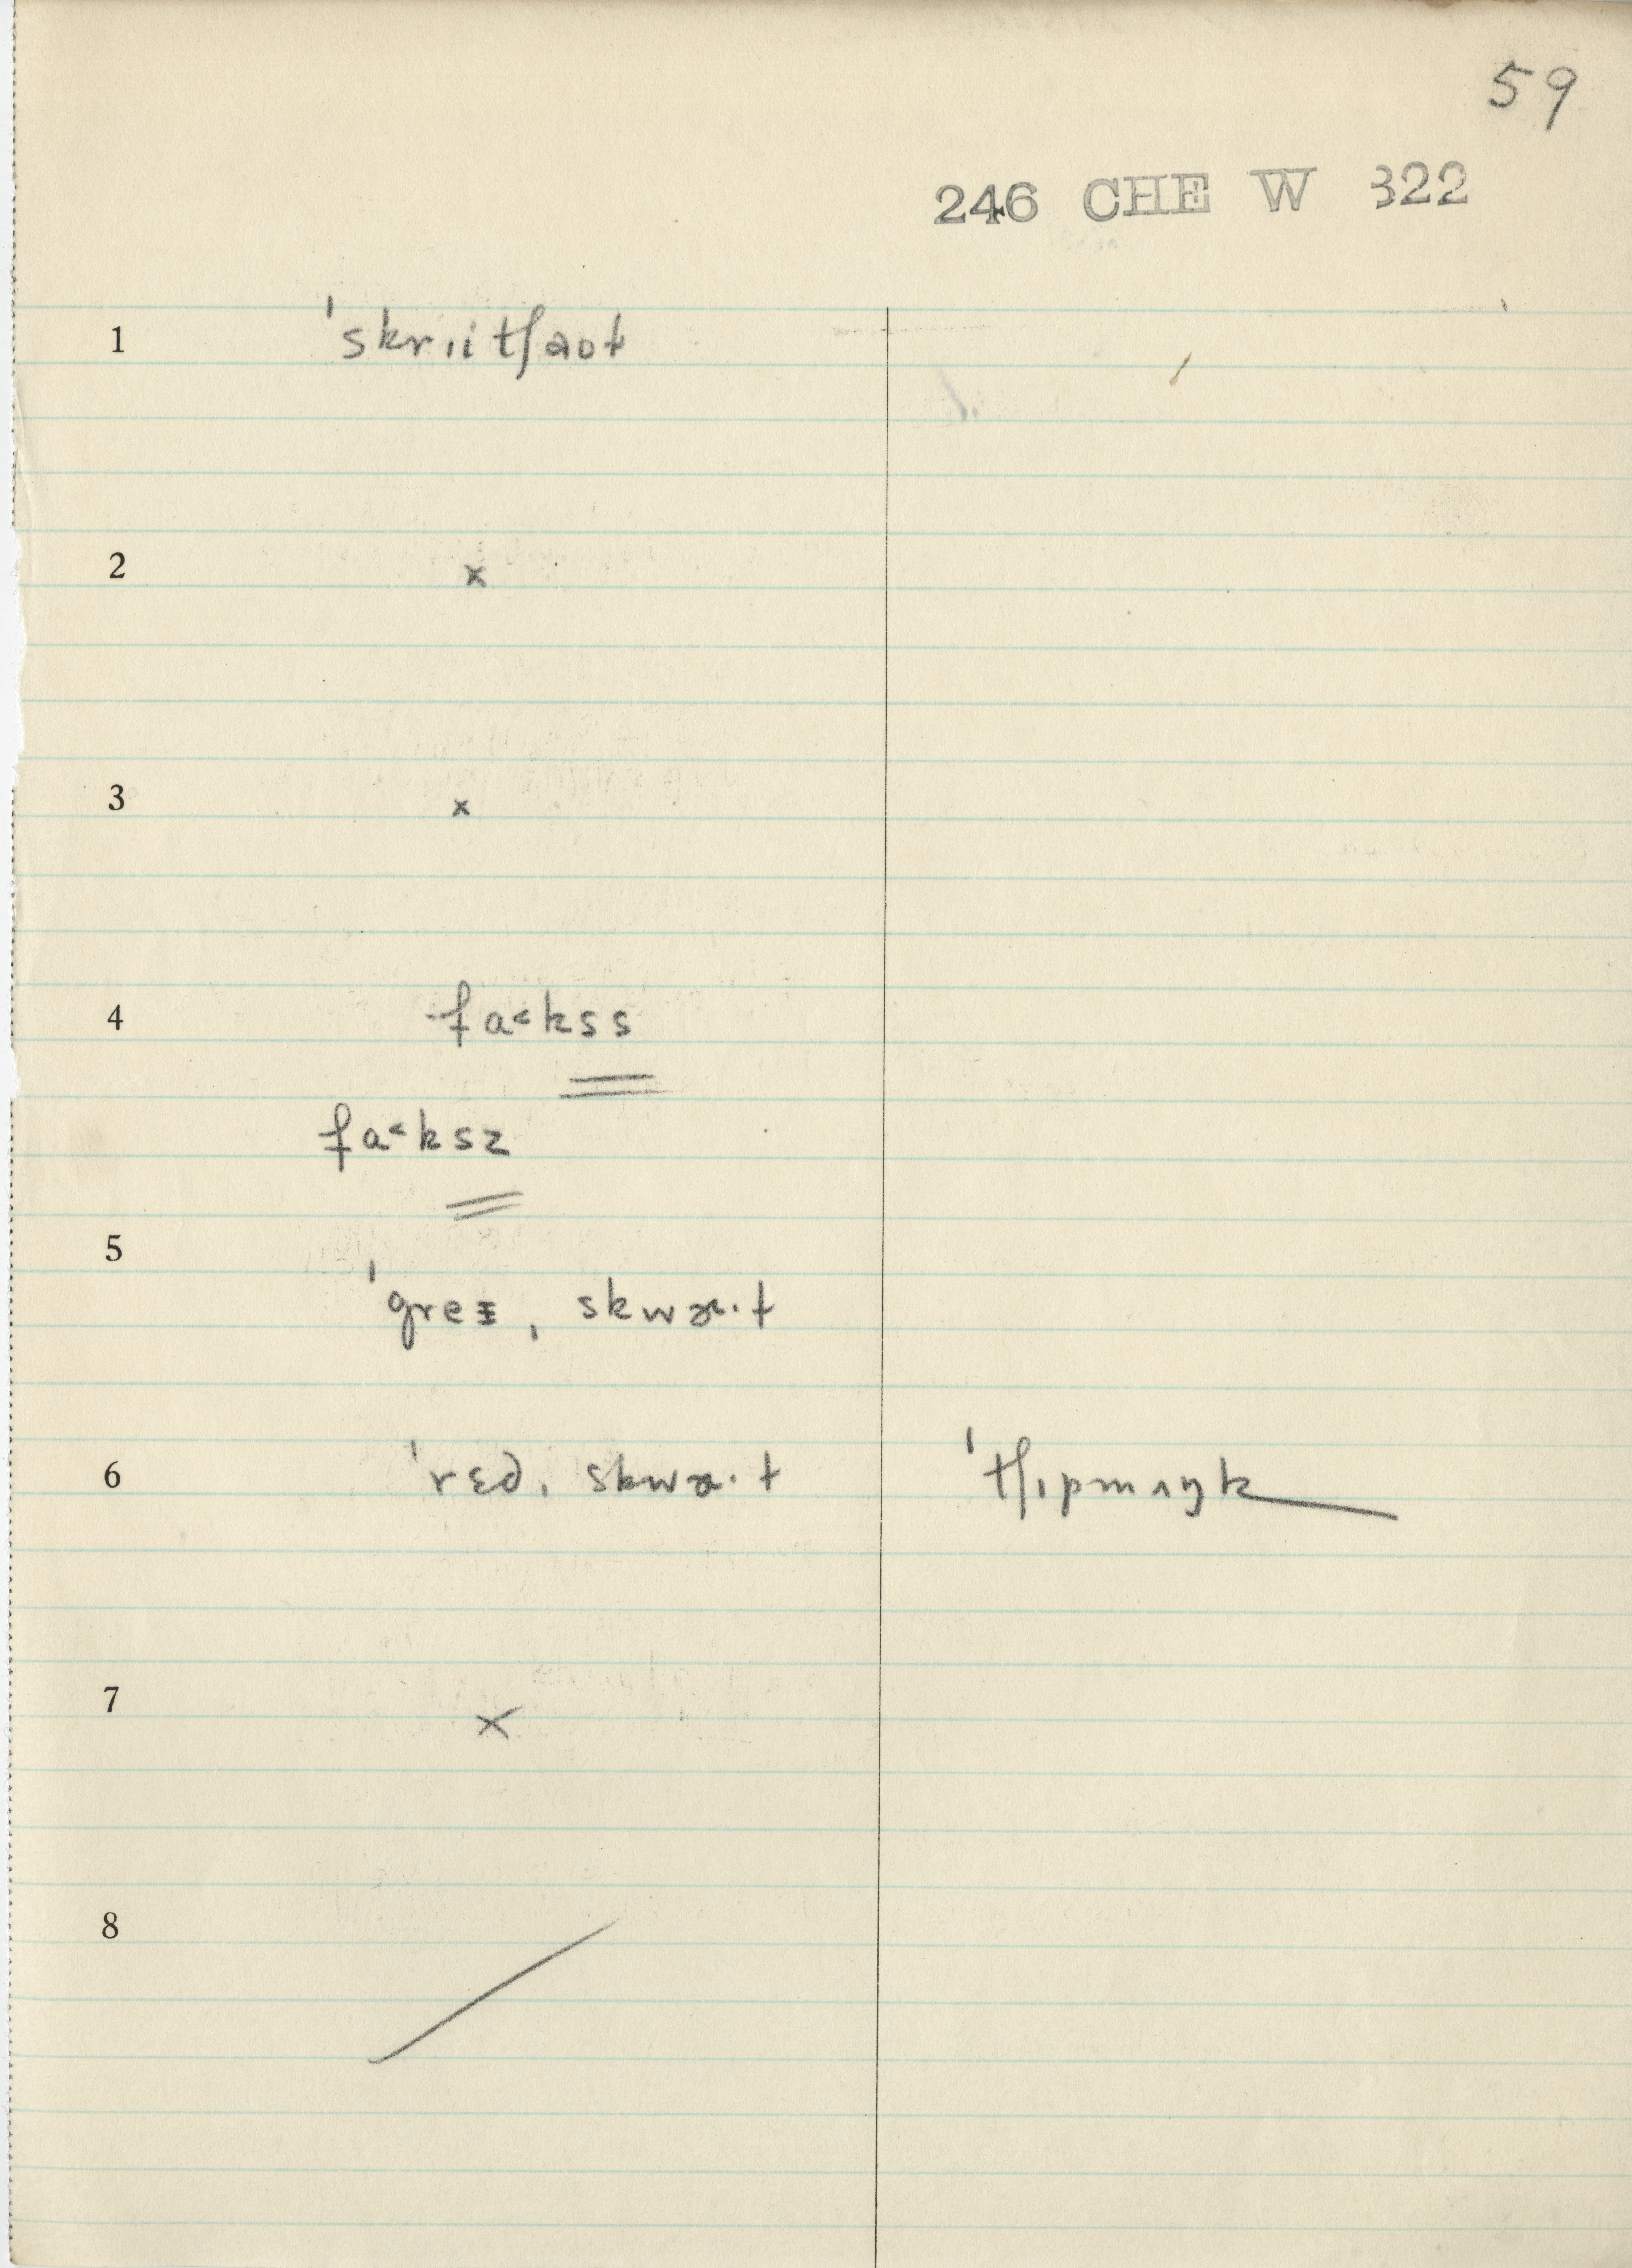 59
246 CHE W 322
1 ˈskrɪitʃaʊt
2 x
3 x
4 fa˂kss
fa˂ksz
5 ˈgreɪˌskwɒ·t
6 ˈrɛdˌskwɒ·t ˈtʃɪpmʌŋk
7 x
8